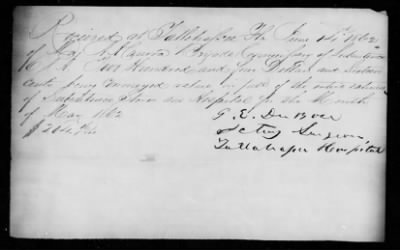 Received at Tallahassee Fla June 14th 1862
of Maj A. Canova Brigade Commissary of Subsistence
C.S.A. Two Hundred and four Dollars and Sixteen
Cents being commuted value in full of the entire rations
of Subsistence Stores in Hospital for the Month
of May 1862
$204.16
G. E.
Acting Surgeon
Tallahassee Hospital